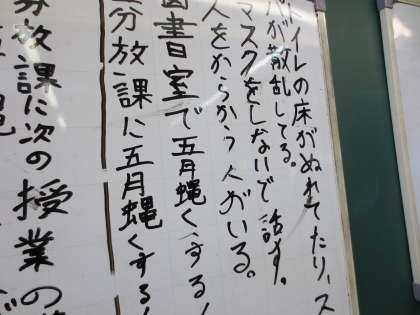 トイレの床がぬれてたり、ス
パが散乱してる。
マスクをしないで話す。
人をからかう人がいる。
図書室で五月蝿くする!
分放課に五月蝿くする!
分放課に次の授業の